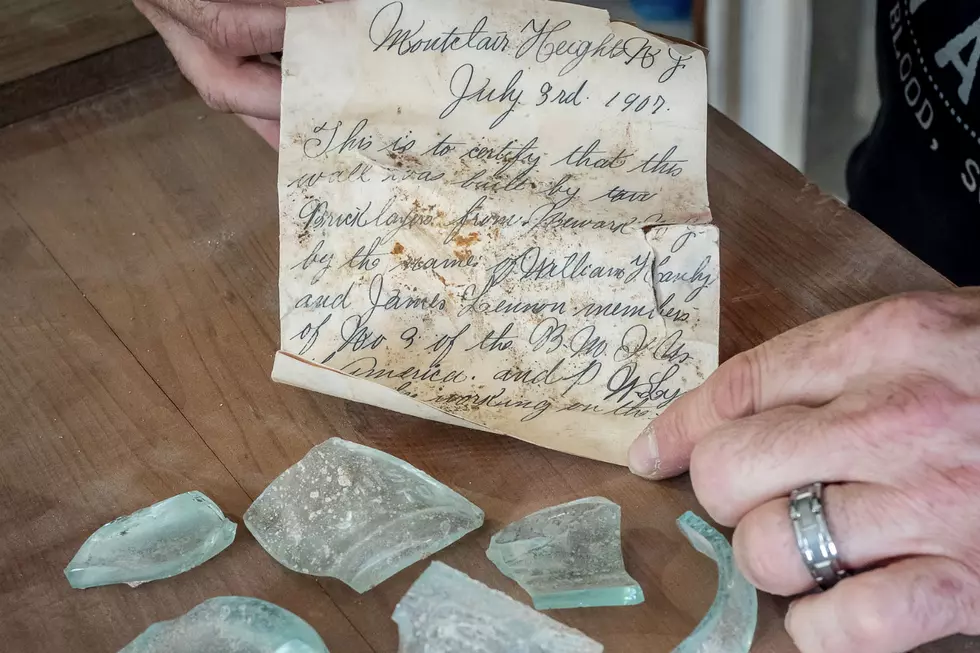 Montclair Height N J
July 3rd. 1907.
This is to certify that this
wall was built by two
Bricklayers from Newark N J
by the name of William Hanly
and James Lennon members
of No 3 of the B. M. I. U.
America. and
working on the
BLOOD, S